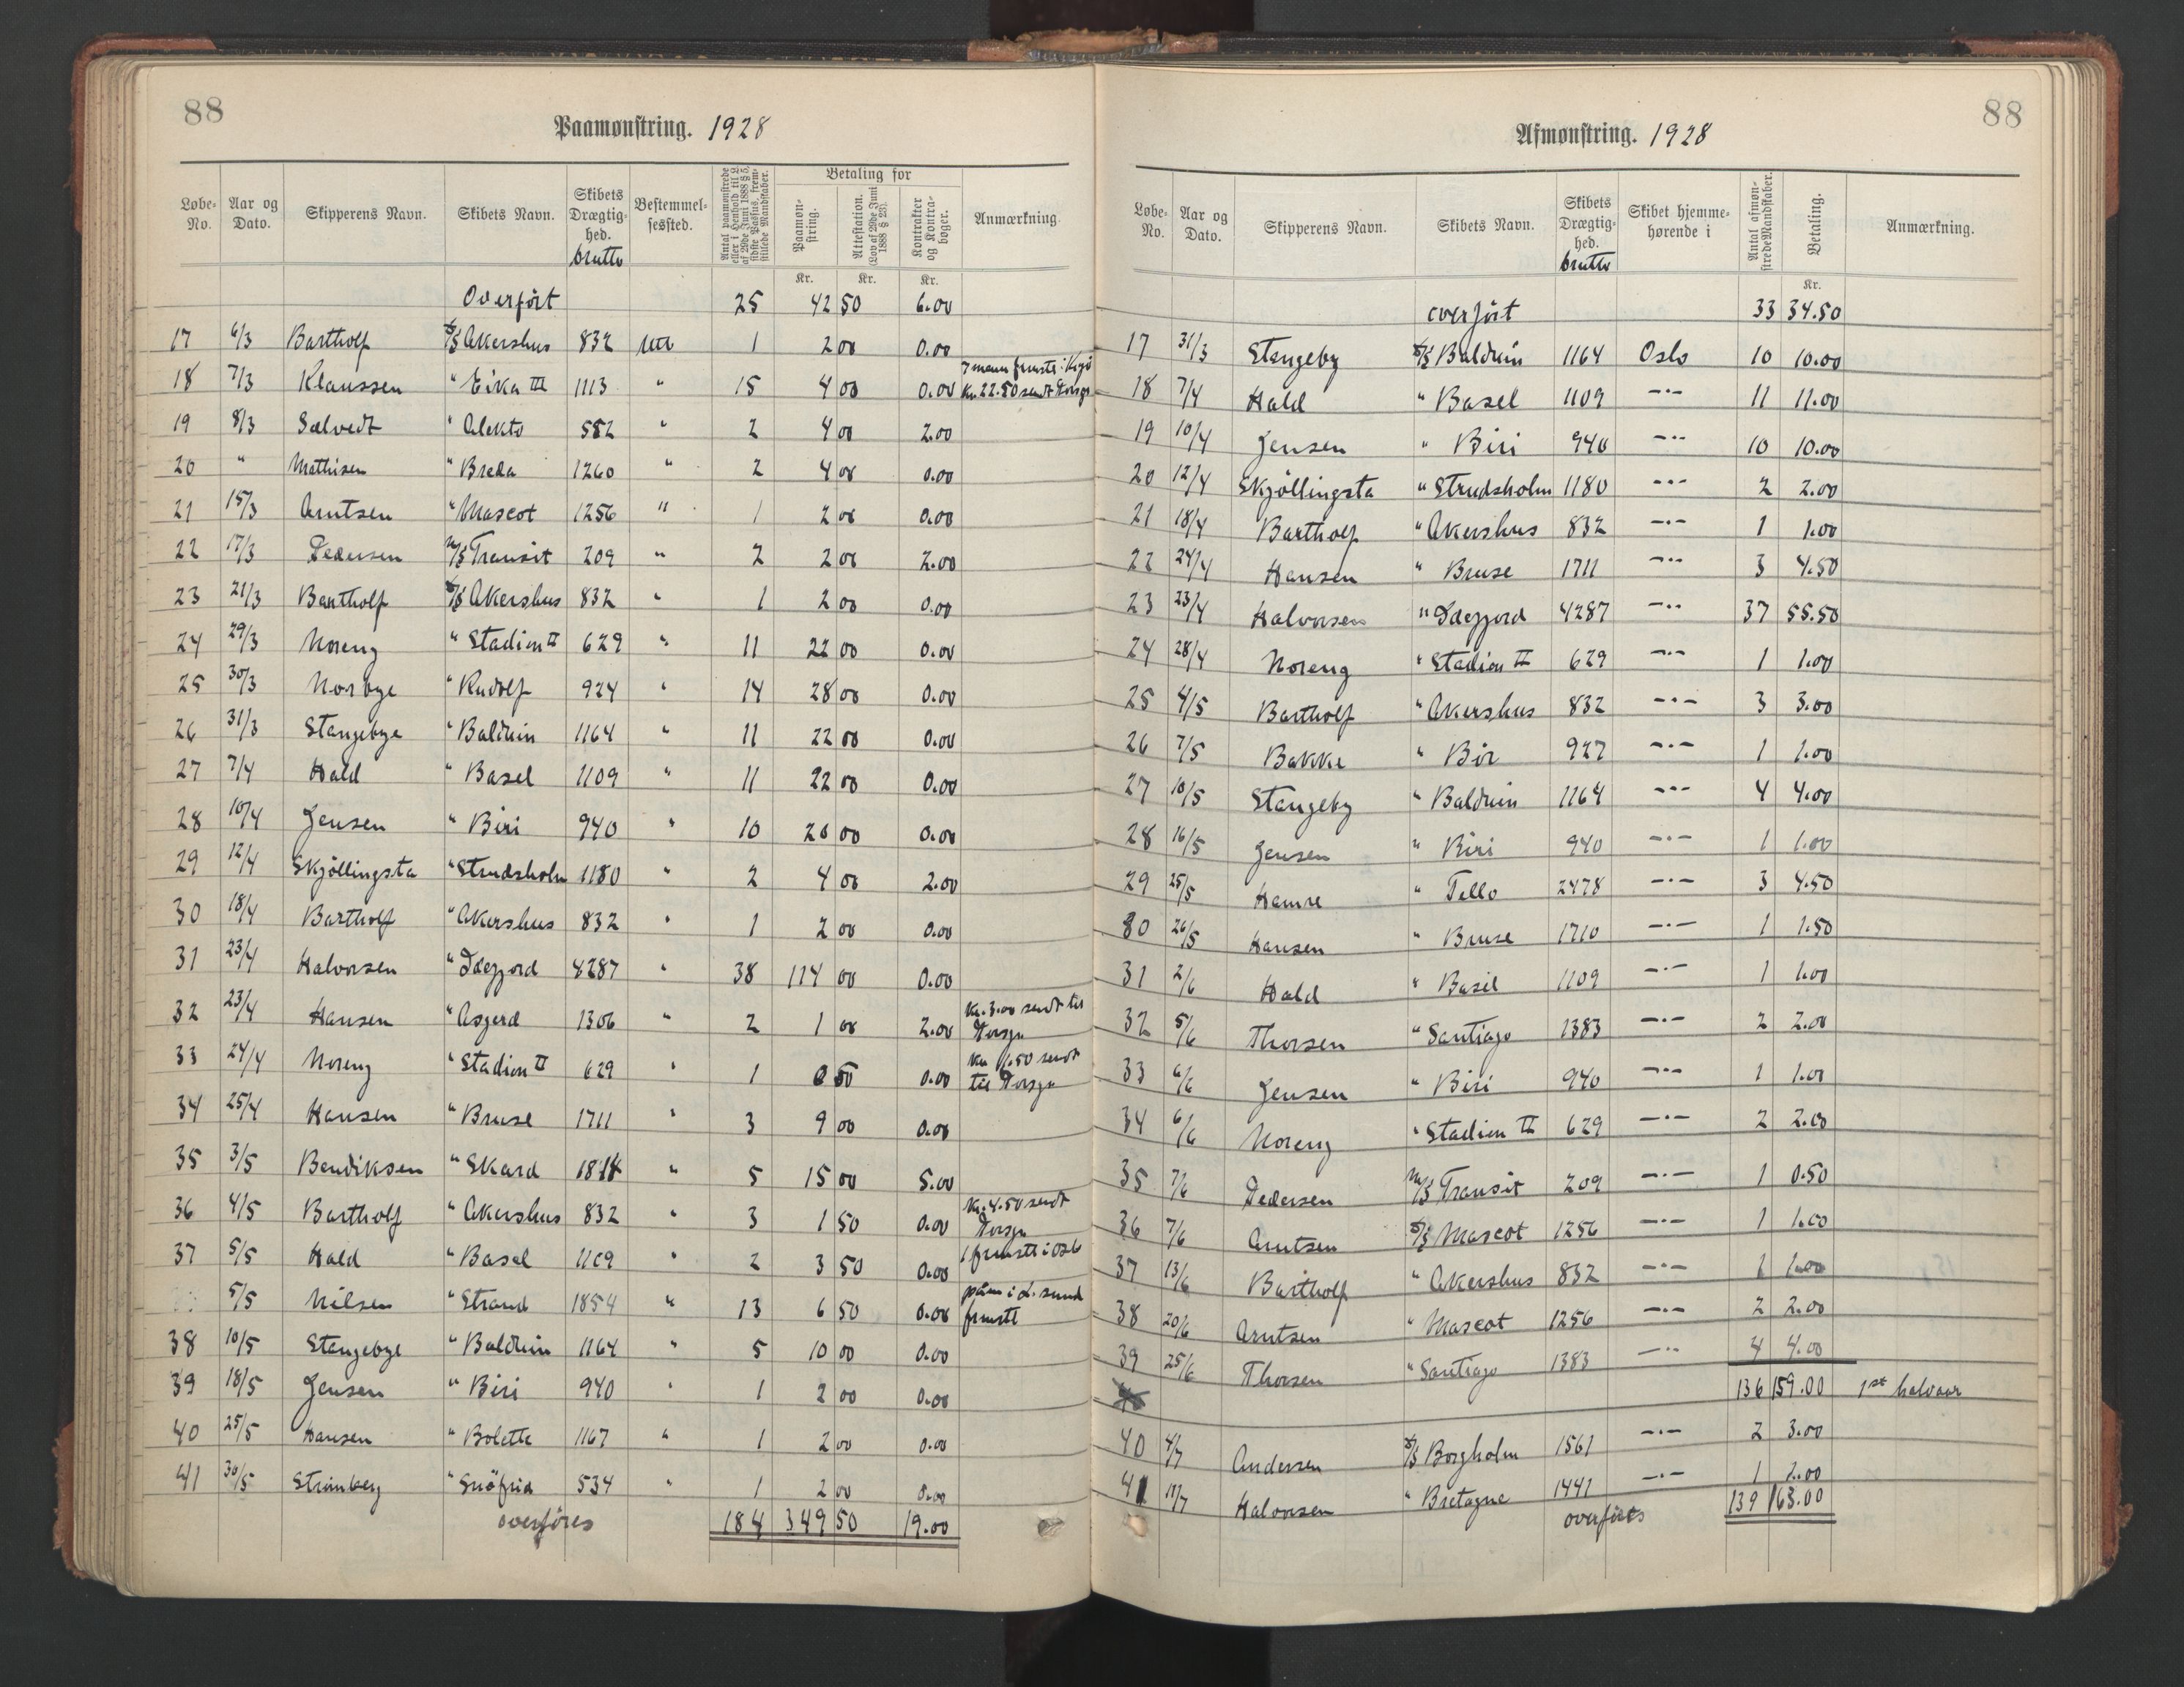 88
Paamønstring. 1928
Løbe-No. | Aar og Dato. | Skipperens Navn. | Skibets Navn. | Skibets Drægtighed. brutto | Bestemmelsessted. | Antal paamønstrede eller i Henhold til L. af 29de Juni 1888 § 5, sidste Passus, fremstillede Mandskaber. | Betaling for | Paamønstring. | Attestation. (Lov af 29de Juni 1888 § 23). | Kontrakter og Kontrabøger. | Anmærkning
Kr. Kr. Kr.
Overført 25 42 50 6.00
17 6/3 Bartholf S/S Akershus 832 utr 1 2 00 0.00
18 7/3 Klaussen " Eika III 1113 " 15 4 00 0.00 7 mann Kr. 22.50 sendt
19 8/3 Salvedt " Alekto 582 " 2 4 00 2.00
20 " Mathisen " Breda 1260 " 2 4 00 0.00
21 15/3 Arntsen " Mascot 1256 " 1 2 00 0.00
22 17/3 Pedersen M/S Transit 209 " 2 2 00 2.00
23 21/3 Bartholf S/S Akershus 832 " 1 2 00 0.00
24 29/3 Noreng " Stadion II 629 " 11 22 00 0.00
25 30/3 Norbye " Rudolf 924 " 14 28 00 0.00
26 31/3 Stangebye " Balduin 1164 " 11 22 00 0.00
27 7/4 Hald " Basel 1109 " 11 22 00 0.00
28 10/4 Jensen " Biri 940 " 10 20 00 0.00
29 12/4 Skjöllingsta " Strudsholm 1180 " 2 4 00 2.00
30 18/4 Bartholf " Akershus 832 " 1 2 00 0.00
31 23/4 Halvorsen " Idefjord 4287 " 38 114 00 0.00
32 23/4 Hansen " Asgerd 1306 " 2 1 00 2.00 Kr. 3.00 sendt til
33 24/4 Noreng " Stadion II 629 " 1 0 50 0.00 Kr 1.50 sendt til
34 25/4 Hansen " Bruse 1711 " 3 9 00 0.00
35 3/5 Bendiksen " Skard 1818 " 5 15 00 5.00
36 4/5 Bartholf " Akershus 832 " 3 1 50 0.00 Kr. 4.50 sendt
37 5/5 Hald " Basel 1109 " 2 3 50 0.00 1 frmstt i Oslo
5/5 Nilsen " Strand 1854 " 13 6 50 0.00 påm i L. sund frmstt
38 10/5 Stangebye " Balduin 1164 " 5 10 00 0.00
39 18/5 Jensen " Biri 940 " 1 2 00 0.00
40 25/5 Hansen " Bolette 1167 " 1 2 00 0.00
41 30/5 Strömberg " Snöfrid 534 " 1 2 00 0.00
overføres 184 349 50 19.00
88
Afmønstring. 1928
Løbe-No. | Aar og Dato. | Skipperens Navn. | Skibets Navn. | Skibets Drægtighed. brutto | Skibet hjemmehørende i | Antal afmønstrede Mandskaber. | Betaling. | Anmærkning.
Kr.
overført 33 34.50
17 31/3 Stangeby S/S Balduin 1164 Oslo 10 10.00
18 7/4 Hald " Basel 1109 -"- 11 11.00
19 10/4 Jensen " Biri 940 -"- 10 10.00
20 12/4 Skjöllingsta " Strudsholm 1180 -"- 2 2.00
21 18/4 Bartholf " Akershus 832 -"- 1 1.00
22 24/4 Hansen " Bruse 1711 -"- 3 4.50
23 23/4 Halvorsen " Idefjord 4287 -"- 37 55.50
24 28/4 Noreng " Stadion II 629 -"- 1 1.00
25 4/5 Bartholf " Akershus 832 -"- 3 3.00
26 7/5 Bakke " Bir 927 -"- 1 1.00
27 10/5 Stangeby " Balduin 1164 -"- 4 4.00
28 16/5 Jensen " Biri 940 -"- 1 1.00
29 25/5 Hamre " Tello 2478 -"- 3 4.50
30 26/5 Hansen " Bruse 1710 -"- 1 1.50
31 2/6 Hald " Basel 1109 -"- 1 1.00
32 5/6 Thorsen " Santiago 1383 -"- 2 2.00
33 6/6 Jensen " Biri 940 -"- 1 1.00
34 6/6 Noreng " Stadion II 629 -"- 2 2.00
35 7/6 Pedersen M/S Transit 209 -"- 1 0.50
36 7/6 Arntsen S/S Mascot 1256 -"- 1 1.00
37 13/6 Bartholf " Akershus 832 -"- 1 1.00
38 20/6 Arntsen " Mascot 1256 -"- 2 2.00
39 25/6 Thorsen " Santiago 1383 -"- 4 4.00
136 159.00 1st halvaar
40 4/7 Andersen S/S Borgholm 1561 -"- 2 3.00
41 11/7 Halvorsen " Bretagne 1441 -"- 1 1.00
overføres 139 163.00